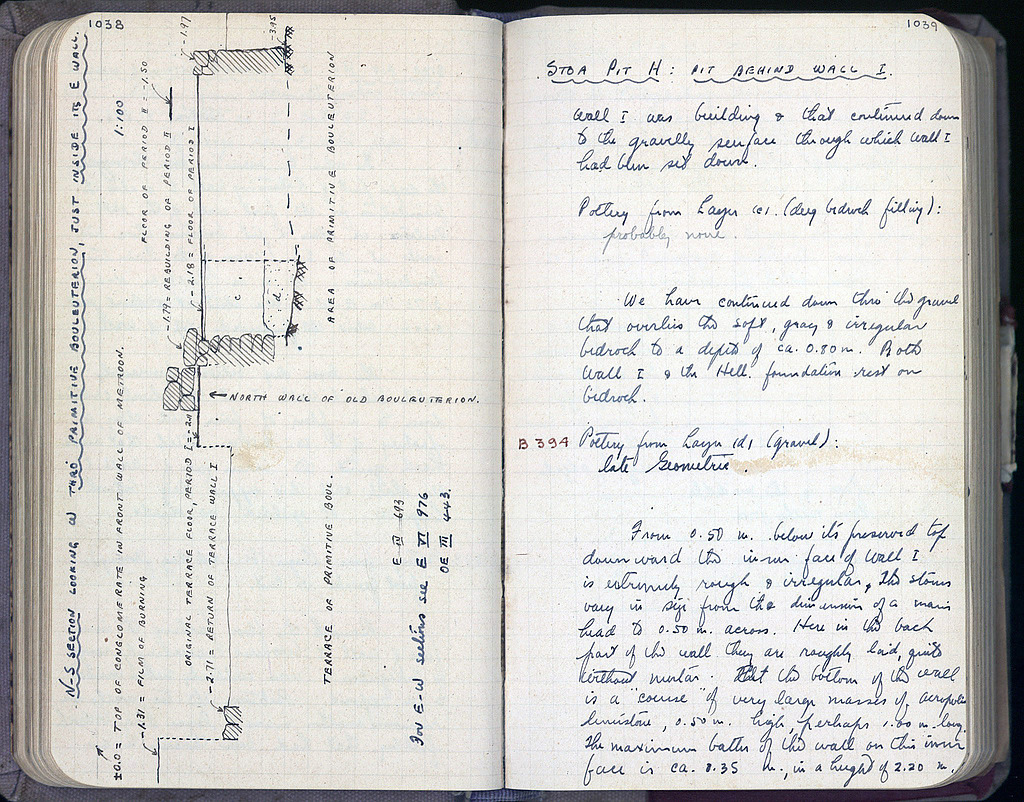 1038
N-S SECTION LOOKING W THRO PRIMITIVE BOULEUTERION, JUST INSIDE ITS E WALL.
1:100
±0.0 = TOP OF CONGLOMERATE IN FRONT WALL OF METROON.
-1.31 = FILM OF BURNING
FLOOR OF PERIOD II = -1.50
-1.79 = REBUILDING OF PERIOD II
-1.97
-2.18 = FLOOR OF PERIOD I
ORIGINAL TERRACE FLOOR, PERIOD I =
-2.71 = RETURN OF TERRACE WALL I
-3.95
c
d
← NORTH WALL OF OLD BOULEUTERION.
AREA OF PRIMITIVE BOULEUTERION
TERRACE OF PRIMITIVE BOUL.
E IV 693
For E-W sections see E VI 976
OE III 443.
1039
STOA PIT H: PIT BEHIND WALL I.
Wall I was building & that continued down
to the gravelly surface through which Wall I
had been set down.
Pottery from Layer (c) (deep bedrock filling):
probably none.
We have continued down thro the gravel
that overlies the soft, gray & irregular
bedrock to a depth of ca. 0.80 m. Both
Wall I & the Hell. foundation rest on
bedrock.
B 394 Pottery from Layer (d) (gravel):
late Geometric.
From 0.50 m. below its preserved top
downward the inner face of Wall I
is extremely rough & irregular, the stones
vary in size from the dimension of a mans
head to 0.50 m. across. Here in the back
part of the wall they are roughly laid, quite
without mortar. At the bottom of the wall
is a "course" of very large masses of acropolis
limestone, 0.50 m. high, perhaps 1.00 m. long.
The maximum batter of the wall on this inner
face is ca. 0.35 m., in a height of 2.20 m.